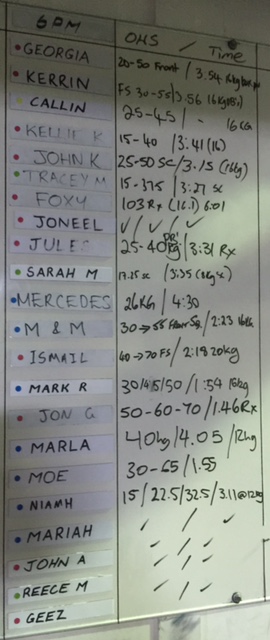 6PM OHS / Time
GEORGIA 20-50 Front / 3.54
KERRIN FS 30-55 / 3.56
CALLIN 25-45 / - 16KG
KELLIE K 15-40 / 3:41 (16)
JOHN K 25-50 SC / 3.15 (16kg)
TRACEY M 15-37.5 / 3:27 SC
FOXY 103 Rx (16.1) 6:01
JONEEL / / / /
JULES 25-40kg / 3:31 Rx
SARAH M 17.25 sc / 3:35 (8kg sc)
MERCEDES 26KG / 4:30
M & M 30 → 55 / 2:23 16KG
ISMAIL 60 → 70 FS / 2:18 20kg
MARK R 30/45/50 / 1:54 16kg
JON G 50-60-70 / 1.46 Rx
MARLA 40kg / 4.05 / 12kg
MOE 30-65 / 1.55
NIAMH 15 / 22.5 / 32.5 / 3.11 @ 12kg
MARIAH
JOHN A
REECE M
GEEZ